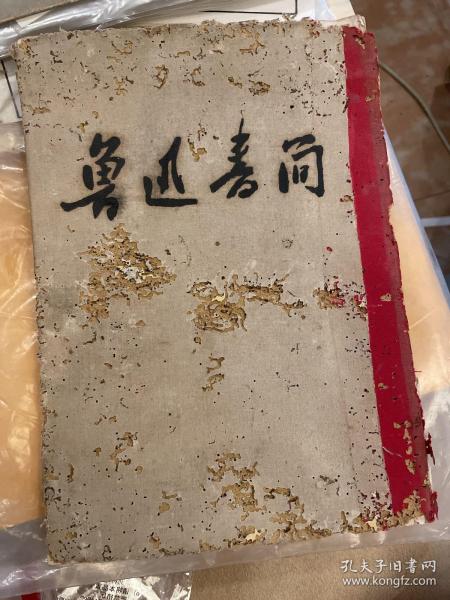 鲁迅书简
孔夫子旧书网
www.kongfz.com